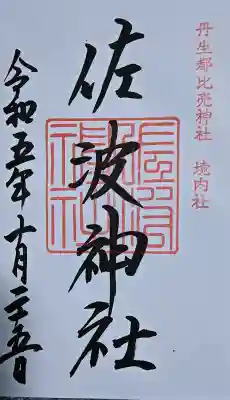 丹生都比売神社 境内社
佐波神社
令和五年十月二十五日